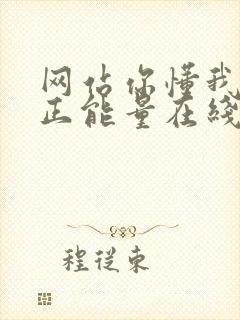 网站你懂我
正能量在线
程従東